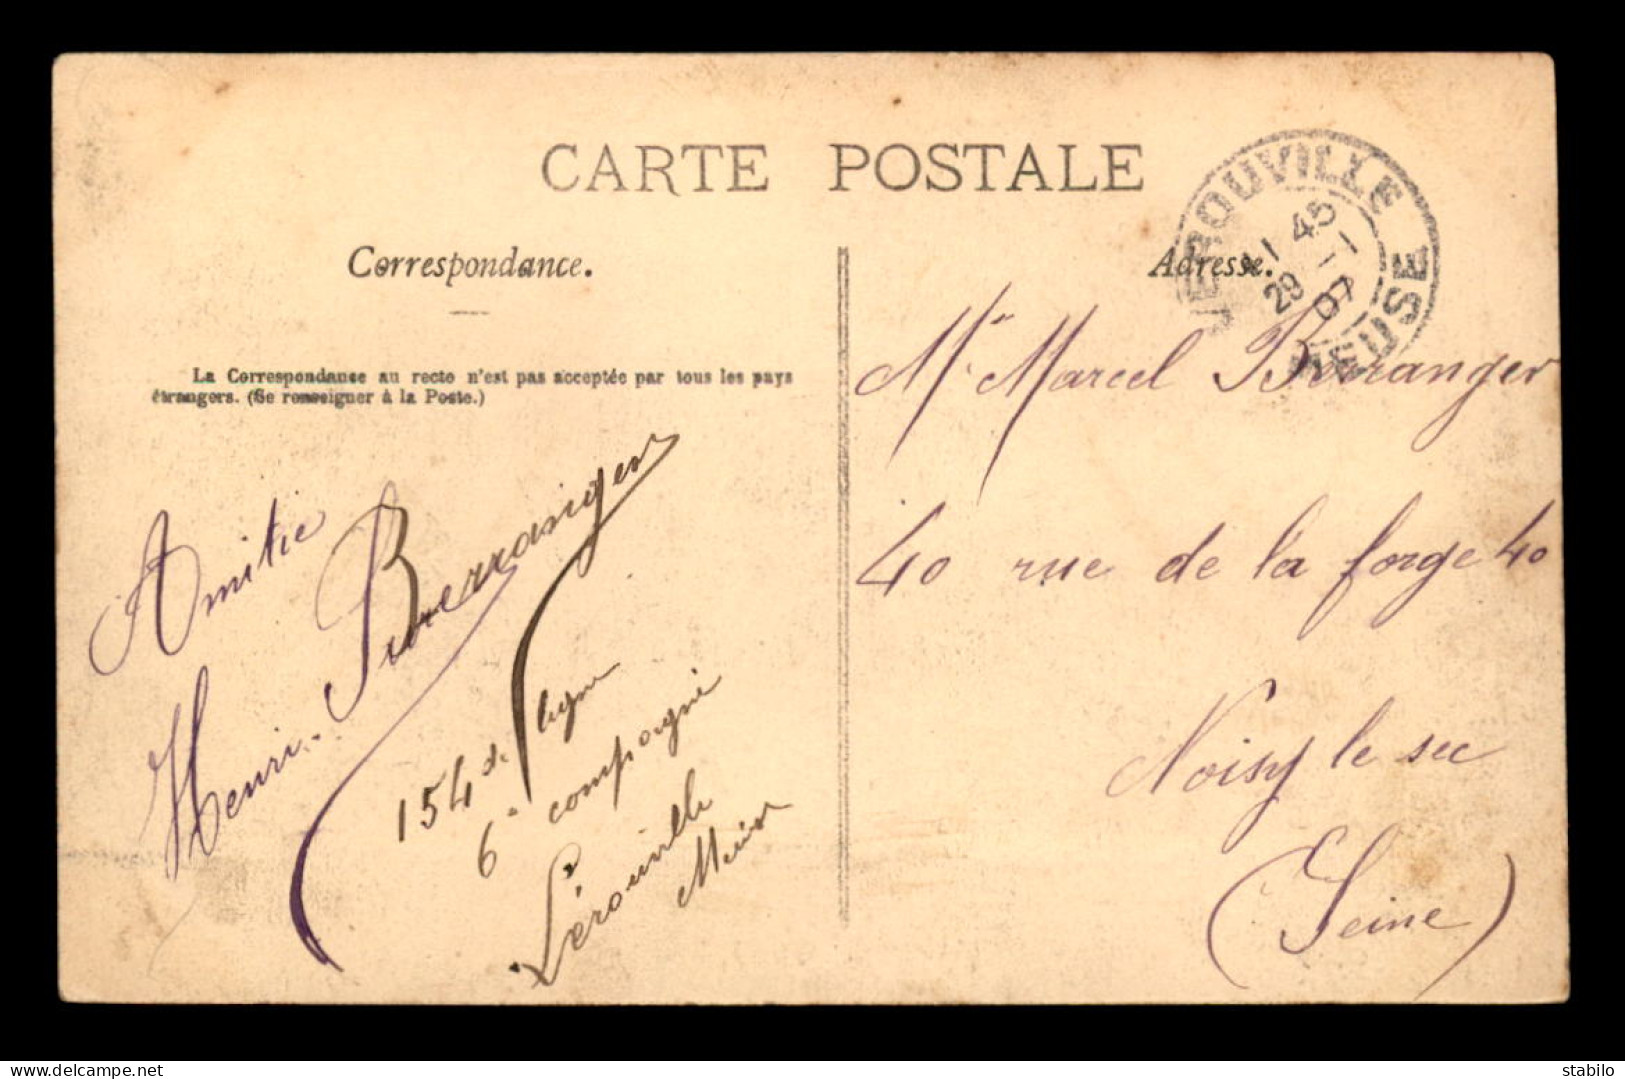 CARTE POSTALE
Correspondance.
La Correspondance au recto n'est pas acceptée par tous les pays
étrangers. (Se renseigner à la Poste.)
Amitie
Henri Berranger
154 de ligne
6e compagnie
Lérouville
Meuse
Adresse.
LEROUVILLE
MEUSE
11 45
29 - 1
07
Mr Marcel Berranger
40 rue de la forge 40
Noisy le sec
(Seine)
www.delcampe.net
stabilo